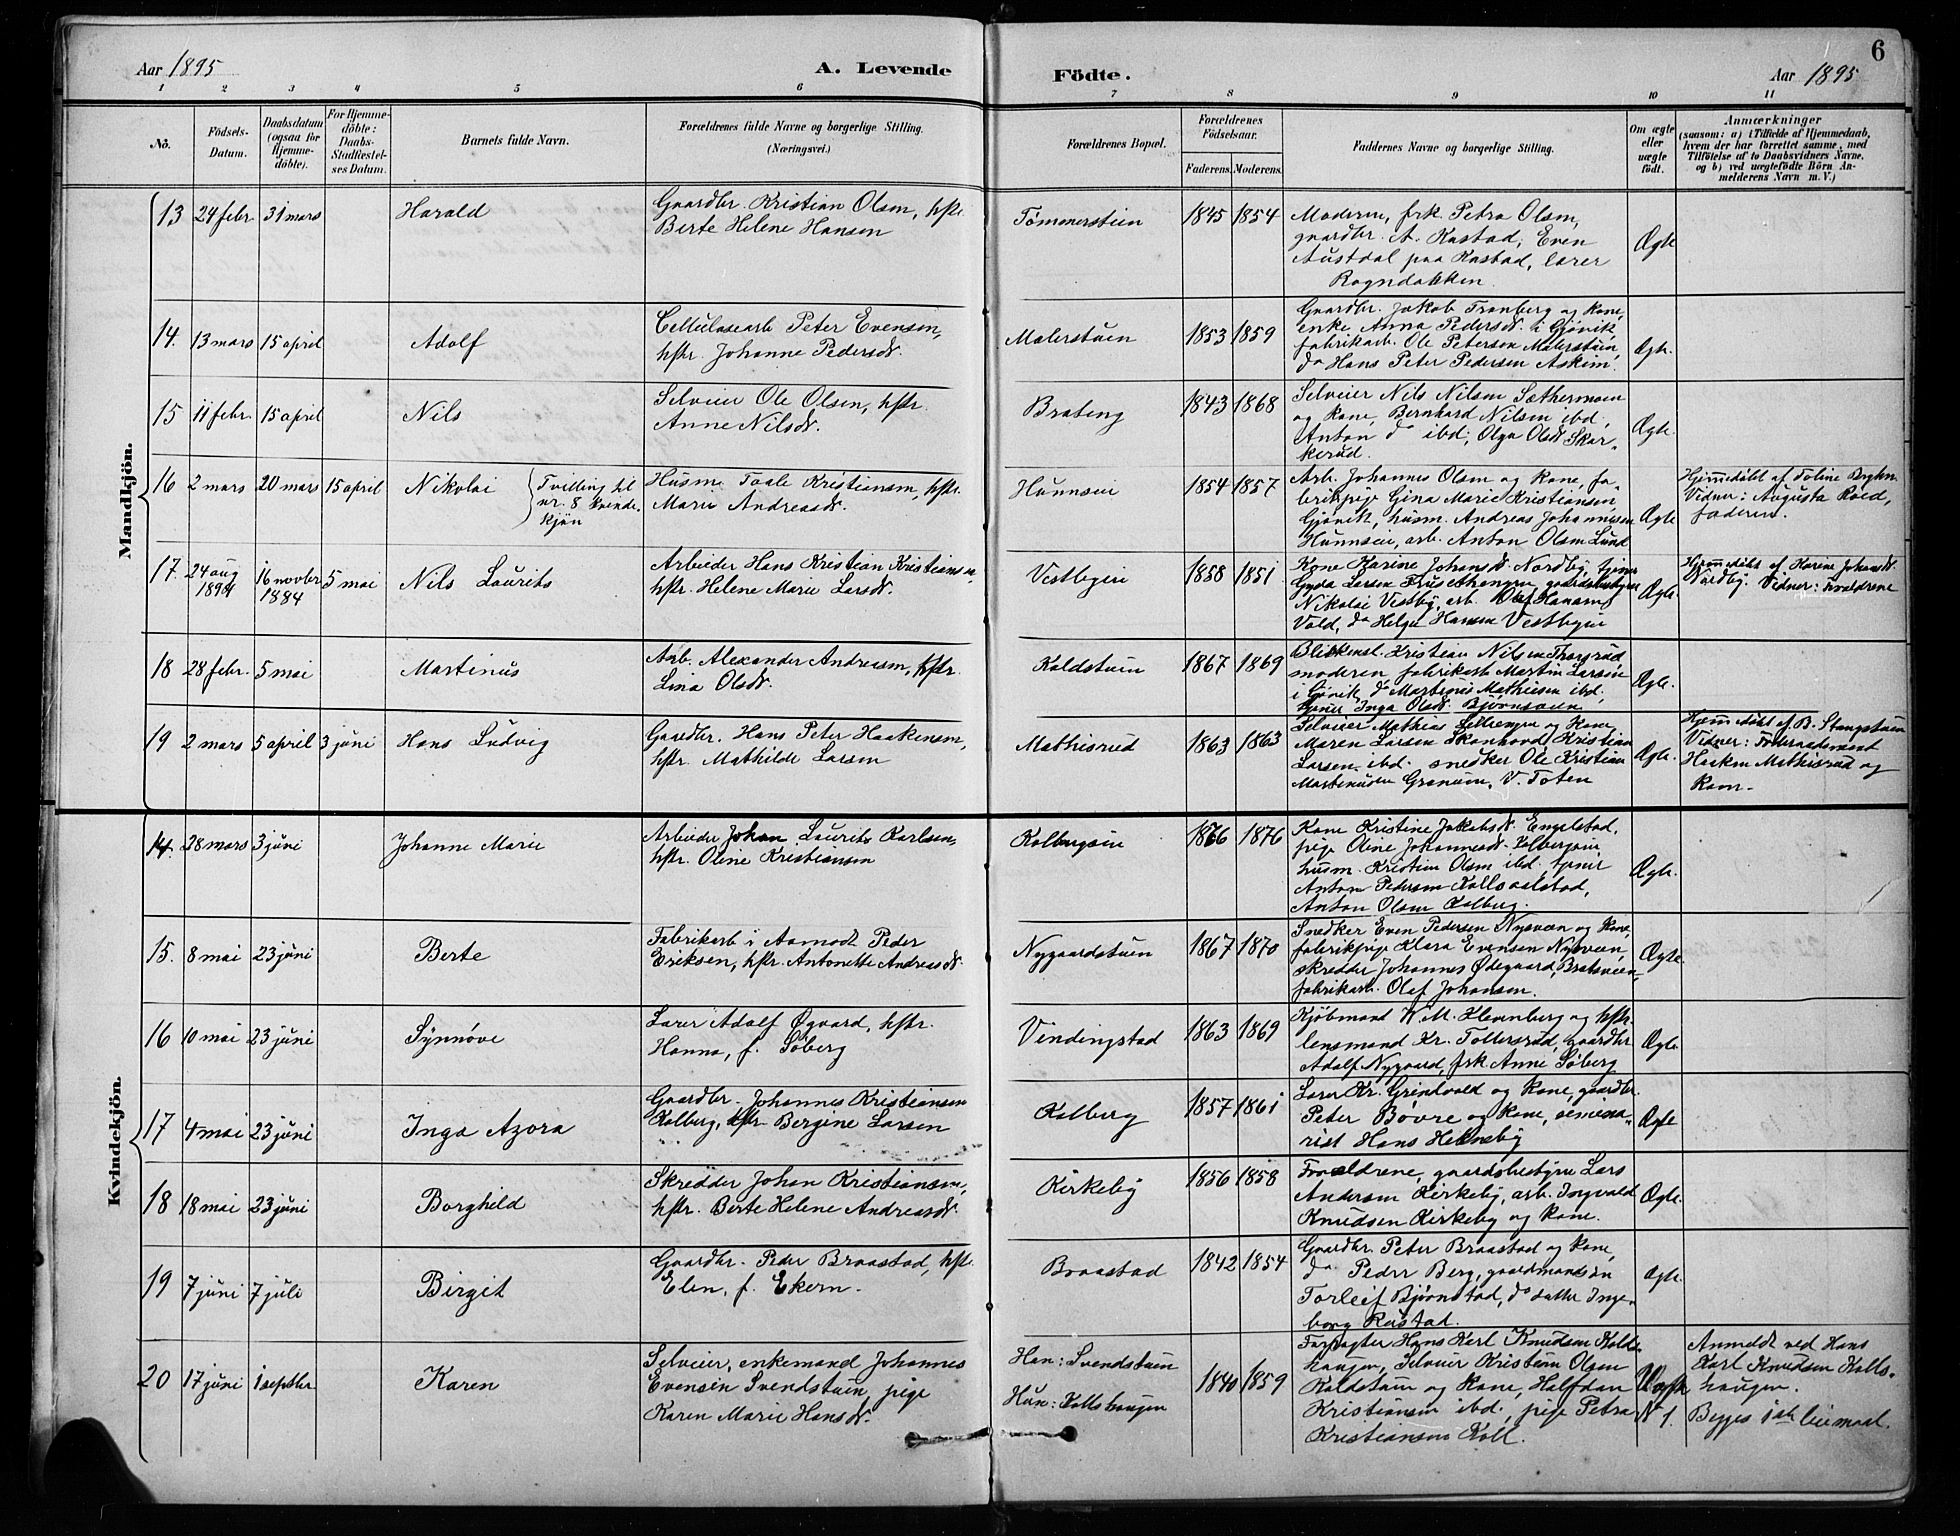 6
Aar 1895 A. Levende Födte. Aar 1895
1 2 3 4 5 6 7 8 9 10 11
No.
Födsels-
Datum.
Daabsdatum
(ogsaa for
Hjemme-
döbte).
For Hjemme-
döbte:
Daabs-
Stadfæstel-
ses Datum.
Barnets fulde Navn.
Forældrenes fulde Navne og borgerlige Stilling.
(Næringsvei.)
Forældrenes Bopæl.
Forældrenes
Födselsaar.
Faderens. Moderens.
Faddernes Navne og borgerlige Stilling.
Om ægte
eller
uægte
födt.
Anmærkninger
(saasom: a) i Tilfælde af Hjemmedaab,
hvem der har forrettet samme, med
Tilföielse af to Daabsvidners Navne,
og b) ved uægtefödte Börn An-
melderens Navn m. V.)
Mandkjön.
13 24 febr. 31 mars Harald
Gaardbr. Kristian Olsen, hstr.
Berte Helene Hansen
Tømmerstuen 1845 1854
Moderen, frk. Petra Olsen,
gaardbr. A. Kastad, Even
Austdal paa Kastad, lærer
Rogndokken.
Ægte
14. 13 mars 15 april Adolf
Cellulosearb Peter Evensen,
hstr. Johanne Pedersdr.
Malerstuen 1853 1859
Gaardbr. Jakob Tranberg og kone,
enke Anna Pedersdr. i Gjøvik,
fabrikarb. Ole Petersen Malerstuen,
do Hans Peter Pedersen Askim.
Ægte.
15 11 febr. 15 april Nils
Selveier Ole Olsen, hstr.
Anne Nilsdr.
Brateng 1843 1868
Selveier Nils Nilsen Sæthermoen
og kone, Bernhard Nilsen ibd,
Anton do ibd, Olga Olsdr Skar-
kerud.
Ægte.
16 2 mars 20 mars 15 april Nikolai
Tvilling til
nr. 8 kvinde
kjøn
Husm. Taale Kristiansen, hstr.
Marie Andreasdr.
Hunnseie 1854 1857
Arb. Johannes Olsen og kone, fa-
brikpige Gina Marie Kristiansen,
Gjøvik, husm. Andreas Johannesen
Hunnseie, arb. Anton Olsen Lund
Ægte
Hjemmedøbt af Toline
Vidner: Augusta Roed,
faderen.
17. 24 aug 1894 16 novbr 1884 5 mai Nils Laurits
Arbeider Hans Kristian Kristiansen,
hstr. Helene Marie Larsdr.
Vestbyeie 1858 1851
Kone Karine Johansdr Nordby, tjener
Gyda Larsen gaardsbestyrer
Nikolai Vestby, arb. Olaf Hansen
Vold, do Helge Hansen Vestbyeie
Ægte.
Hjemmedøbt af Karine Johansdr.
Nordby. Vidner: forældrene
18 28 febr. 5 mai Martinus
Arb. Alexander Andreasen, hstr.
Lina Olsdr.
Koldstuen 1867 1869
Blikkensl. Kristian Nilsen Thorsrud
moderen, fabrikarb Martin Larsen
i Gjøvik, do Martinus Mathiesen ibd,
tjener Inga Olsdr. Bjørnsveen
Ægte.
19 2 mars 5 april 3 juni Hans Ludvig
Gaardbr. Hans Peter Haakensen,
hstr. Mathilde Larsen
Mathisrud 1863 1863
Selveier Mathias og kone,
Maren Larsen Skonhovd, Kristian
Larsen ibd. snedker Ole Kristian
Martinusen Granum, V. Toten
Ægte.
Hjemmedøbt af B. Stangstuen
Vidner: Føderaadsmand
Haaken Mathisrud og
kone.
Kvindekjön.
14. 28 mars 3 juni Johanne Marie
Arbeider Johan Laurits Karlsen,
hstr. Oline Kristiansen
Kolbergseie 1866 1876
Kone Kristine Jakobsdr. Engelstad,
pige Oline Johannesdr. Kolbergseie,
husm. Kristian Olsen ibd. tjener
Anton Pedersen
Anton Olsen Kolberg.
Ægte.
15. 8 mai 23 juni Berte
Fabrikarb i Aamodt Peder
Eriksen, hstr. Antonette Andreasdr.
Nygaardstuen 1867 1870
Snedker Even Pedersen Nysveen og kone,
fabrikpige Klara Evensen Nysveen,
skredder Johannes Ødegaard, Bratsveen,
fabrikarb. Olaf Johansen.
Ægte.
16 10 mai 23 juni Synnøve
Lærer Adolf Øgaard, hstr.
Hanna, f. Søberg
Vindingstad 1863 1869
Kjøbmand W. M. Klevenberg og hstr.
lensmand Kr. Tollersrud, gaardbr
Adolf Nygaard, frk. Anne Søberg
Ægte.
17 4 mai 23 juni Inga Azora
Gaardbr. Johannes Kristiansen
Kolberg, hstr. Bergine Larsen
Kolberg 1857 1861
Lærer Kr. Grindvold og kone, gaardbr.
Peter Bøvre og kone, semina-
rist Hans Hekneby
Ægte
18 18 mai 23 juni Borghild
Skredder Johan Kristiansen,
hstr. Berte Helene Andreasdr.
Kirkeby 1856 1858
Forældrene, gaardsbestyrer Lars
Andersen Kirkeby, arb. Ingvald
Knudsen Kirkeby og kone.
Ægte.
19 7 juni 7 juli Birgit
Gaardbr. Peder Braastad, hstr.
Elen, f. Ekern.
Braastad 1842 1854
Gaardbr. Peter Braastad og kone,
do Peder Berg, gaardmandsøn
Torleif Bjørnstad, do datter Inge-
borg Kastad.
Ægte.
20 17 juni 1 septbr Karen
Selveier, enkemand Johannes
Evensen Svendstuen, pige
Karen Marie Hansdr.
Han: Svendstuen
Hun: Kollshaugen
1840 1859
Forpagter Hans Karl Knudsen Kolls-
haugen, Selveier Kristian Olsen
Koldstuen og kone, Halfdan
Kristiansen ibd, pige Petra
Kristiansen Koll.
Uægte
N 1.
Anmeldt ved Hans
Karl Knudsen Kolls-
haugen.
Begges 1ste leiermaal.